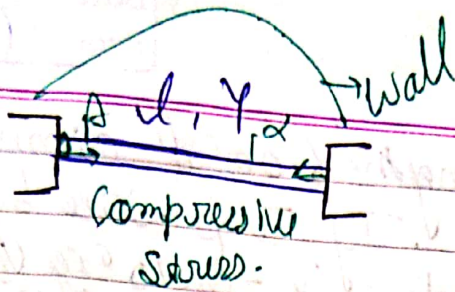 wall
A l, Y, α
Compressive
Stress.